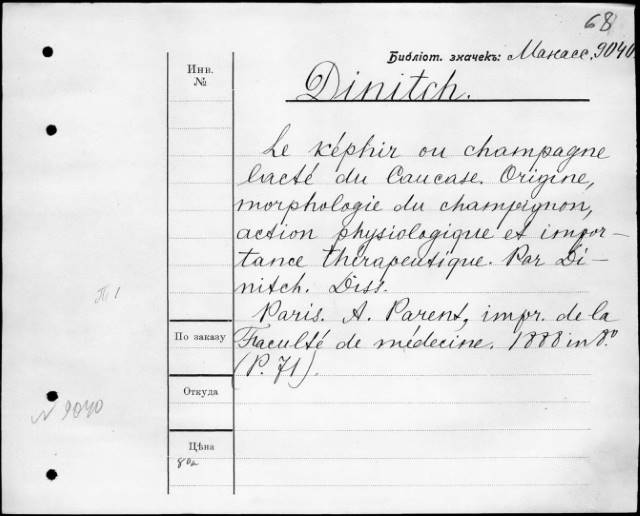 68
Библіот. значекъ: Манасс. 9040.
Инв.
№
Dinitch.
Le képhir ou champagne
lacté du Caucase. Origine,
morphologie du champignon,
action physiologique et impor-
tance thérapeutique. Par Di-
nitch. Diss.
Paris. A. Parent, impr. de la
Faculté de médecine. 1888 in 8.º
(P. 71).
По заказу
Откуда
N 9040
Цѣна